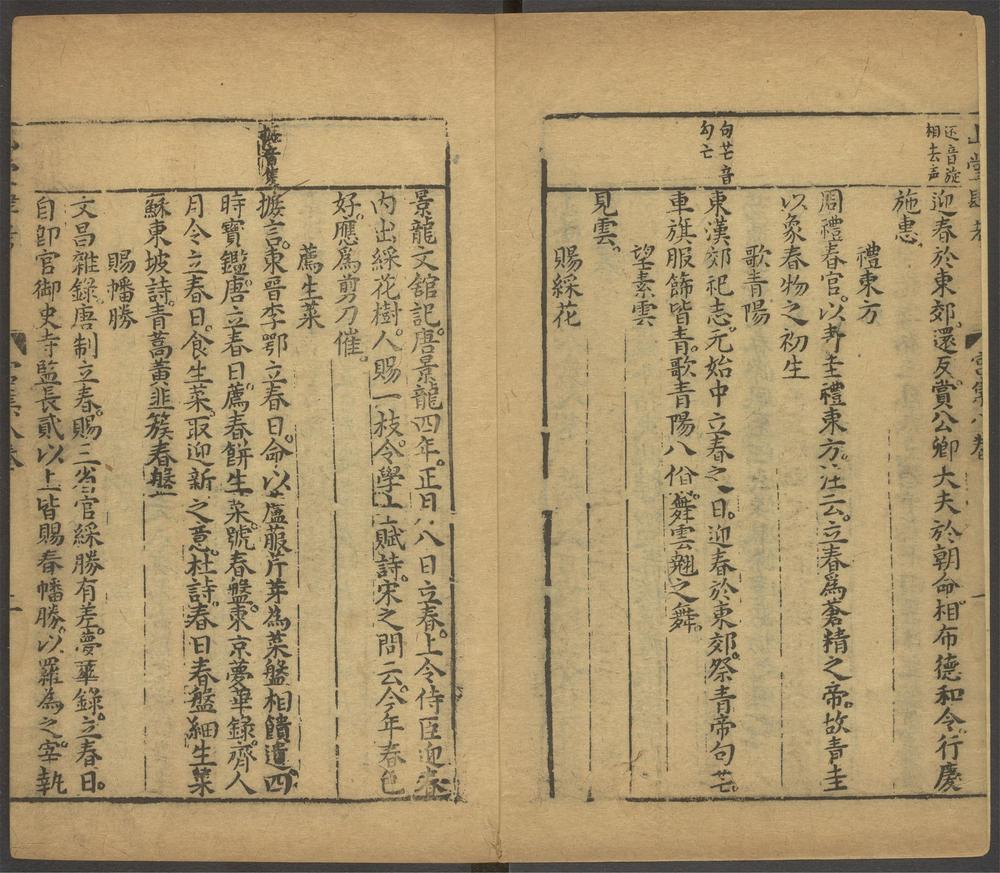 还音旋
相去声
迎春於東郊還反賞公卿大夫於朝命相布德和令行慶
施惠
禮東方
周禮春官以青圭禮東方注云立春為蒼精之帝故青圭
以象春物之初生
歌青陽
句芒音
勾亡
東漢郊祀志元始中立春之日迎春於東郊祭青帝句芒
車旗服飾皆青歌青陽八佾舞雲翹之舞
望素雲
見雲
賜綵花
景龍文舘記唐景龍四年正月八日立春上令侍臣迎春
内出綵花樹人賜一枝令學士賦詩宋之問云今年春色
好應為剪刀催
薦生菜
摭言東晋李鄂立春日命以蘆菔芹芽為菜盤相饋遺四
時寶鑑唐立春日薦春餅生菜號春盤東京夢華錄齊人
月令立春日食生菜取迎新之意杜詩春日春盤細生菜
蘇東坡詩青蒿黃韭簇春盤
賜幡勝
文昌雜錄唐制立春賜三省官綵勝有差夢華錄立春日
自郎官御史寺監長貳以上皆賜春幡勝以羅為之宰執